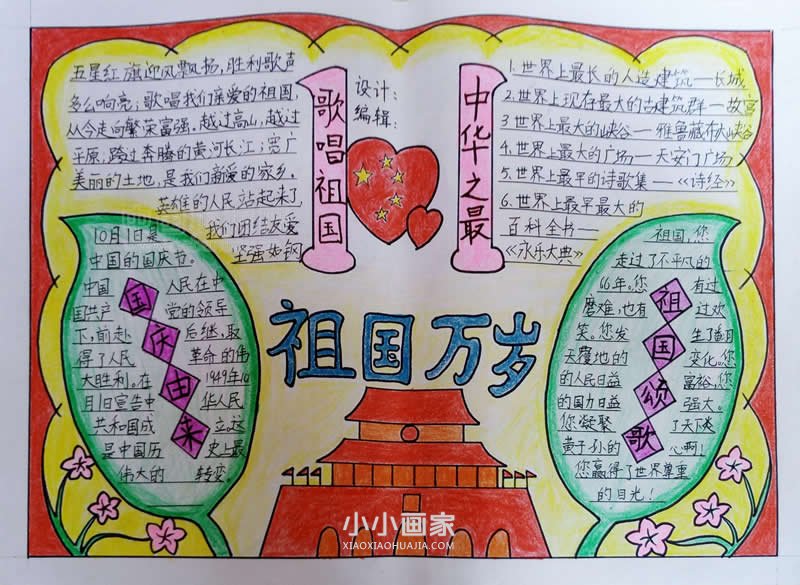 五星红旗迎风飘扬,胜利歌声
多么响亮;歌唱我们亲爱的祖国,
从今走向繁荣富强。越过高山,越过
平原,跨过奔腾的黄河长江;宽广
美丽的土地,是我们亲爱的家乡。
英雄的人民站起来了,
我们团结友爱
坚强如钢
歌唱祖国
设计:
编辑:
中华之最
1.世界上最长的人造建筑——长城
2.世界上现存最大的古建筑群——故宫
3.世界上最大的峡谷——雅鲁藏布大峡谷
4.世界上最大的广场——天安门广场
5.世界上最早的诗歌集——《诗经》
6.世界上最早最大的
百科全书——
《永乐大典》
10月1日是
中国的国庆节。
中国 人民在中
国共产 党的领导
下,前赴 后继,取
得了人民 革命的伟
大胜利。在 1949年10
月1日宣告中 华人民
共和国成 立,这
是中国历 史上最
伟大的 转变。
国庆由来
祖国万岁
祖国,您
走过了不平凡的
66年。您 有过
磨难,也有 过欢
笑。您发 生了翻
天覆地的 变化。您
的人民日益 富裕,您
的国力日益 强大。
您凝聚 了天下炎
黄子孙的 心啊!
您赢得了世界尊重
的目光!
祖国颂歌
小小画家
XIAOXIAOHUAJIA.COM